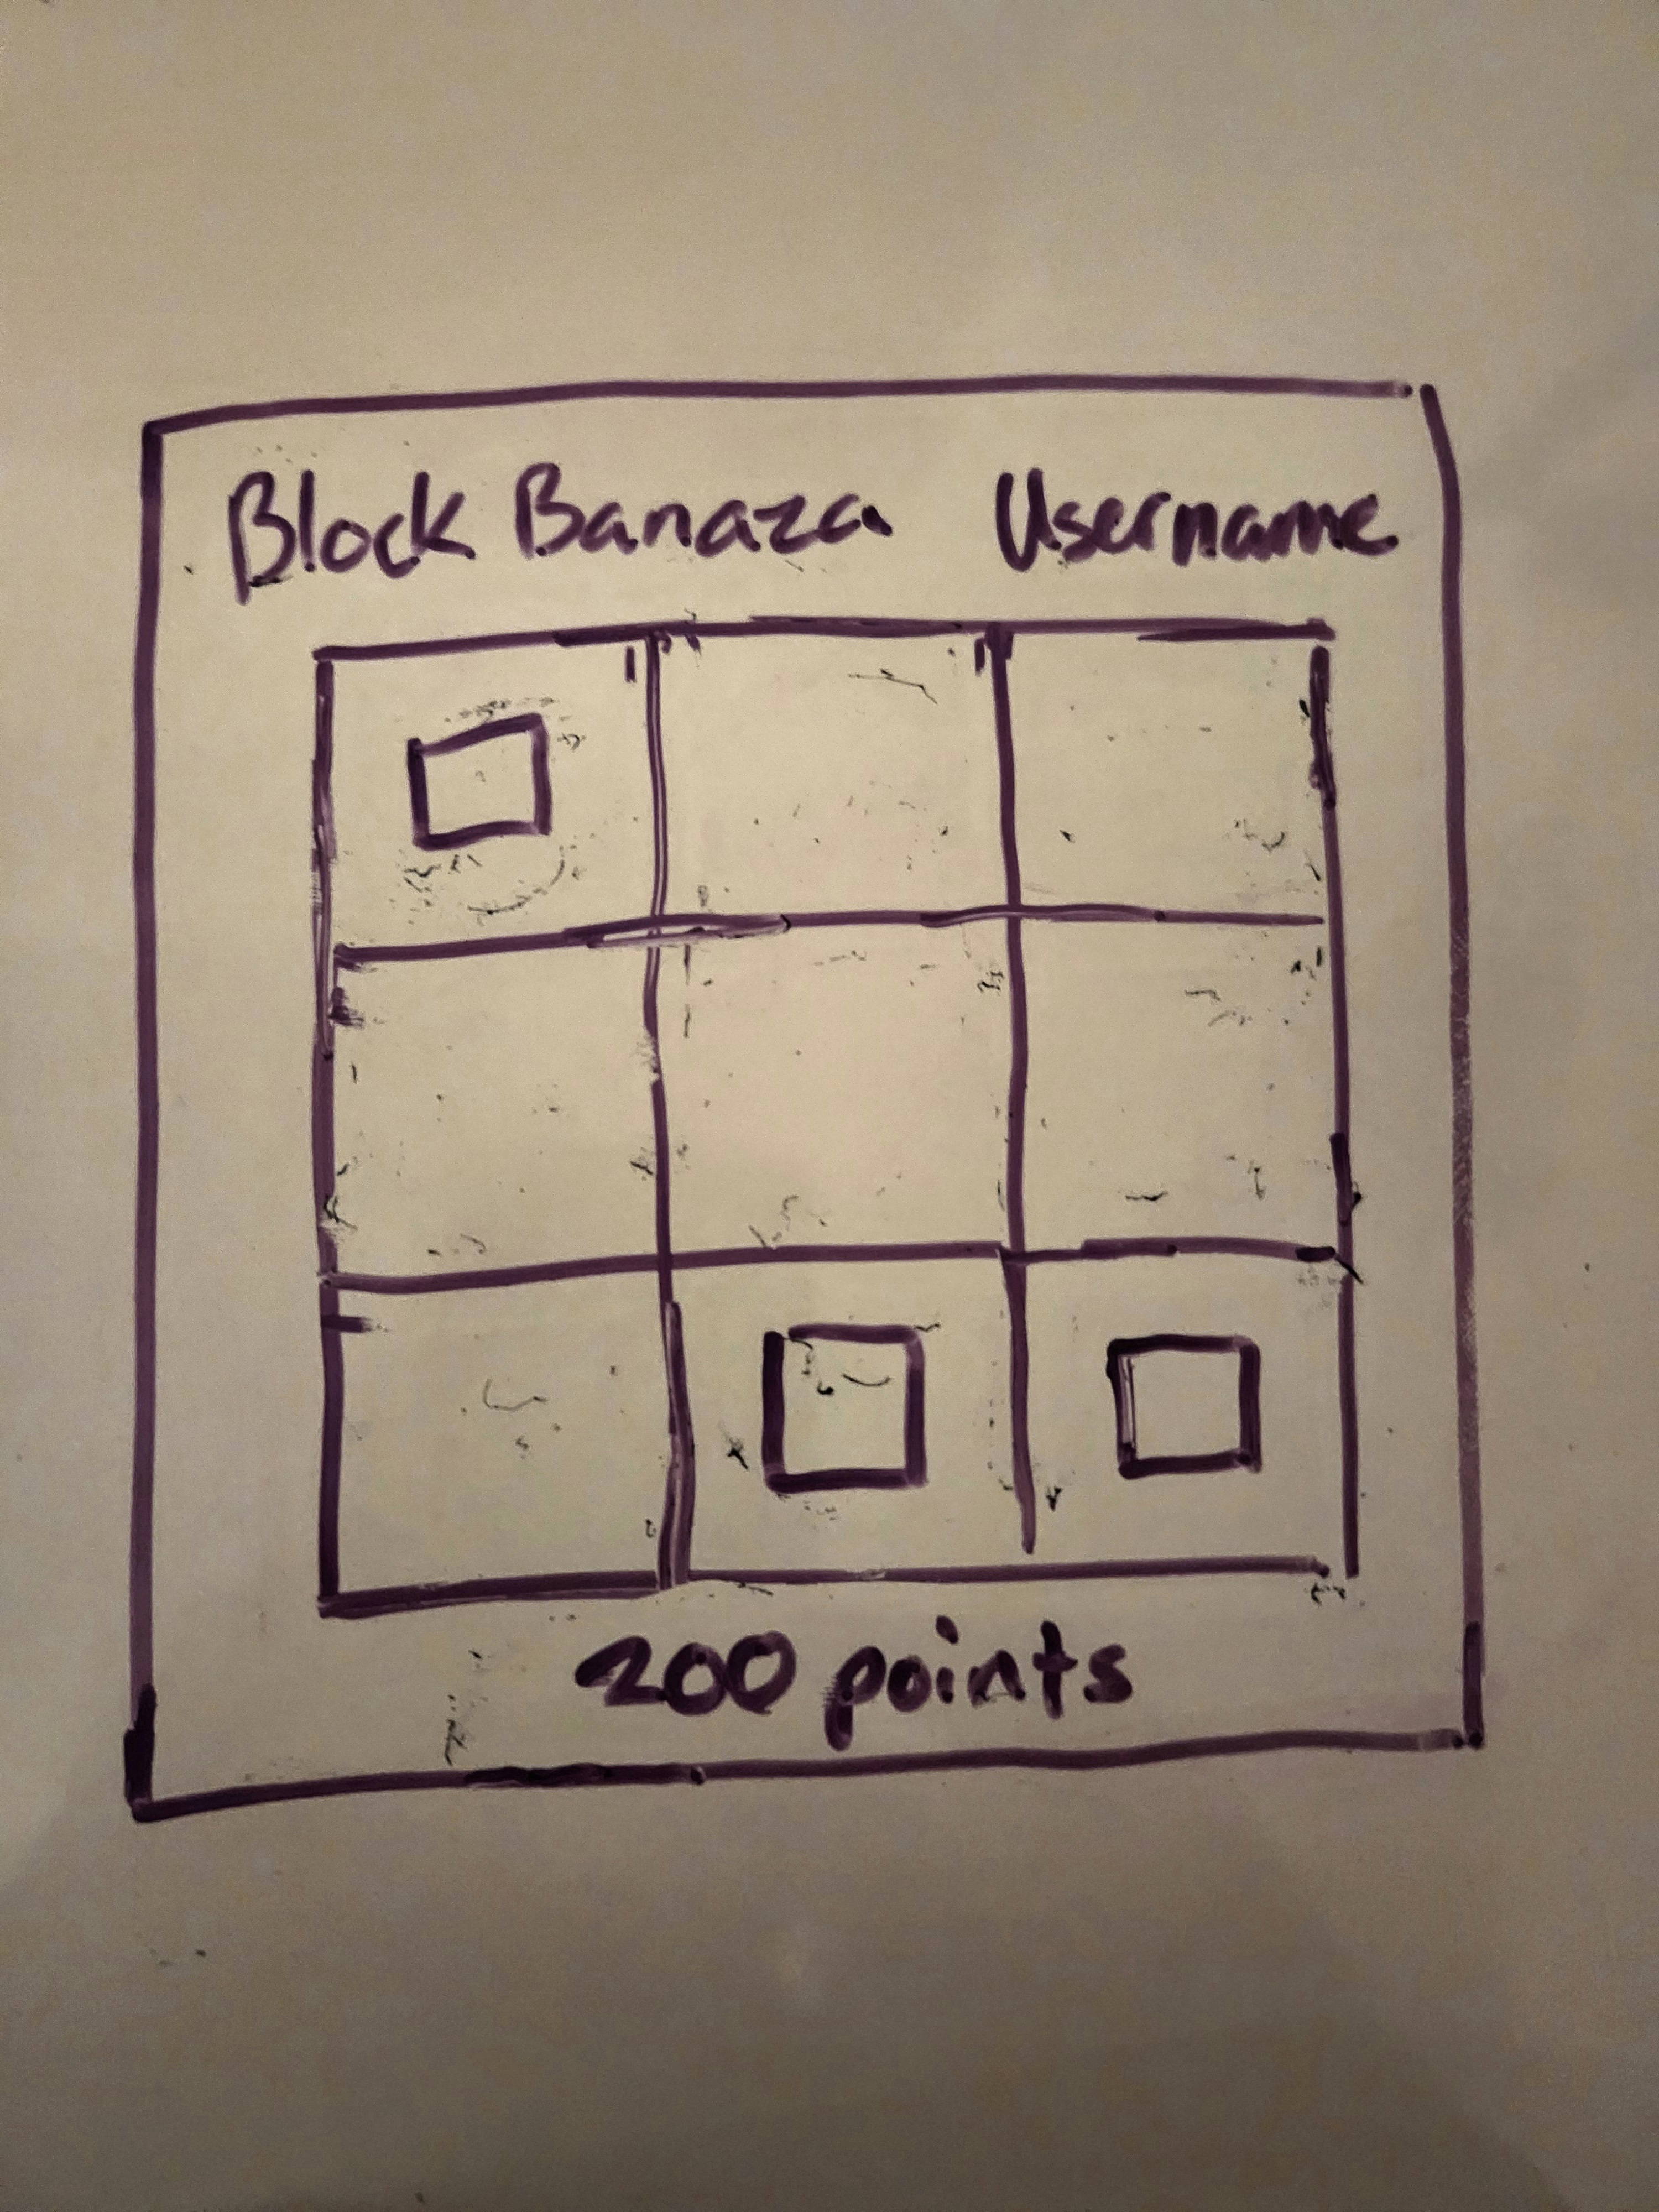 Block Banaza Username
200 points